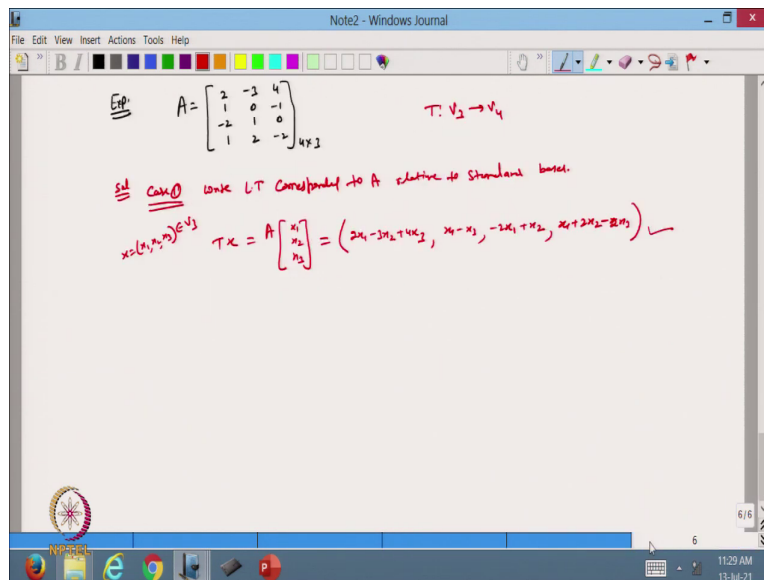 Note2 - Windows Journal
File Edit View Insert Actions Tools Help
B I
Exp. A = [ 2 -3 4
1 0 -1
-2 1 0
1 2 -2 ]4×3
T: V3 → V4
Sol Case ① Write L.T corresponded to A relative to Standard bases.
x=(x1, x2, x3) ∈ V3 Tx = A [ x1 x2 x3 ] = (2x1 - 3x2 + 4x3, x1 - x3, -2x1 + x2, x1 + 2x2 - 2x3) ✓
NPTEL
6/6
6
11:29 AM
13-Jul-21